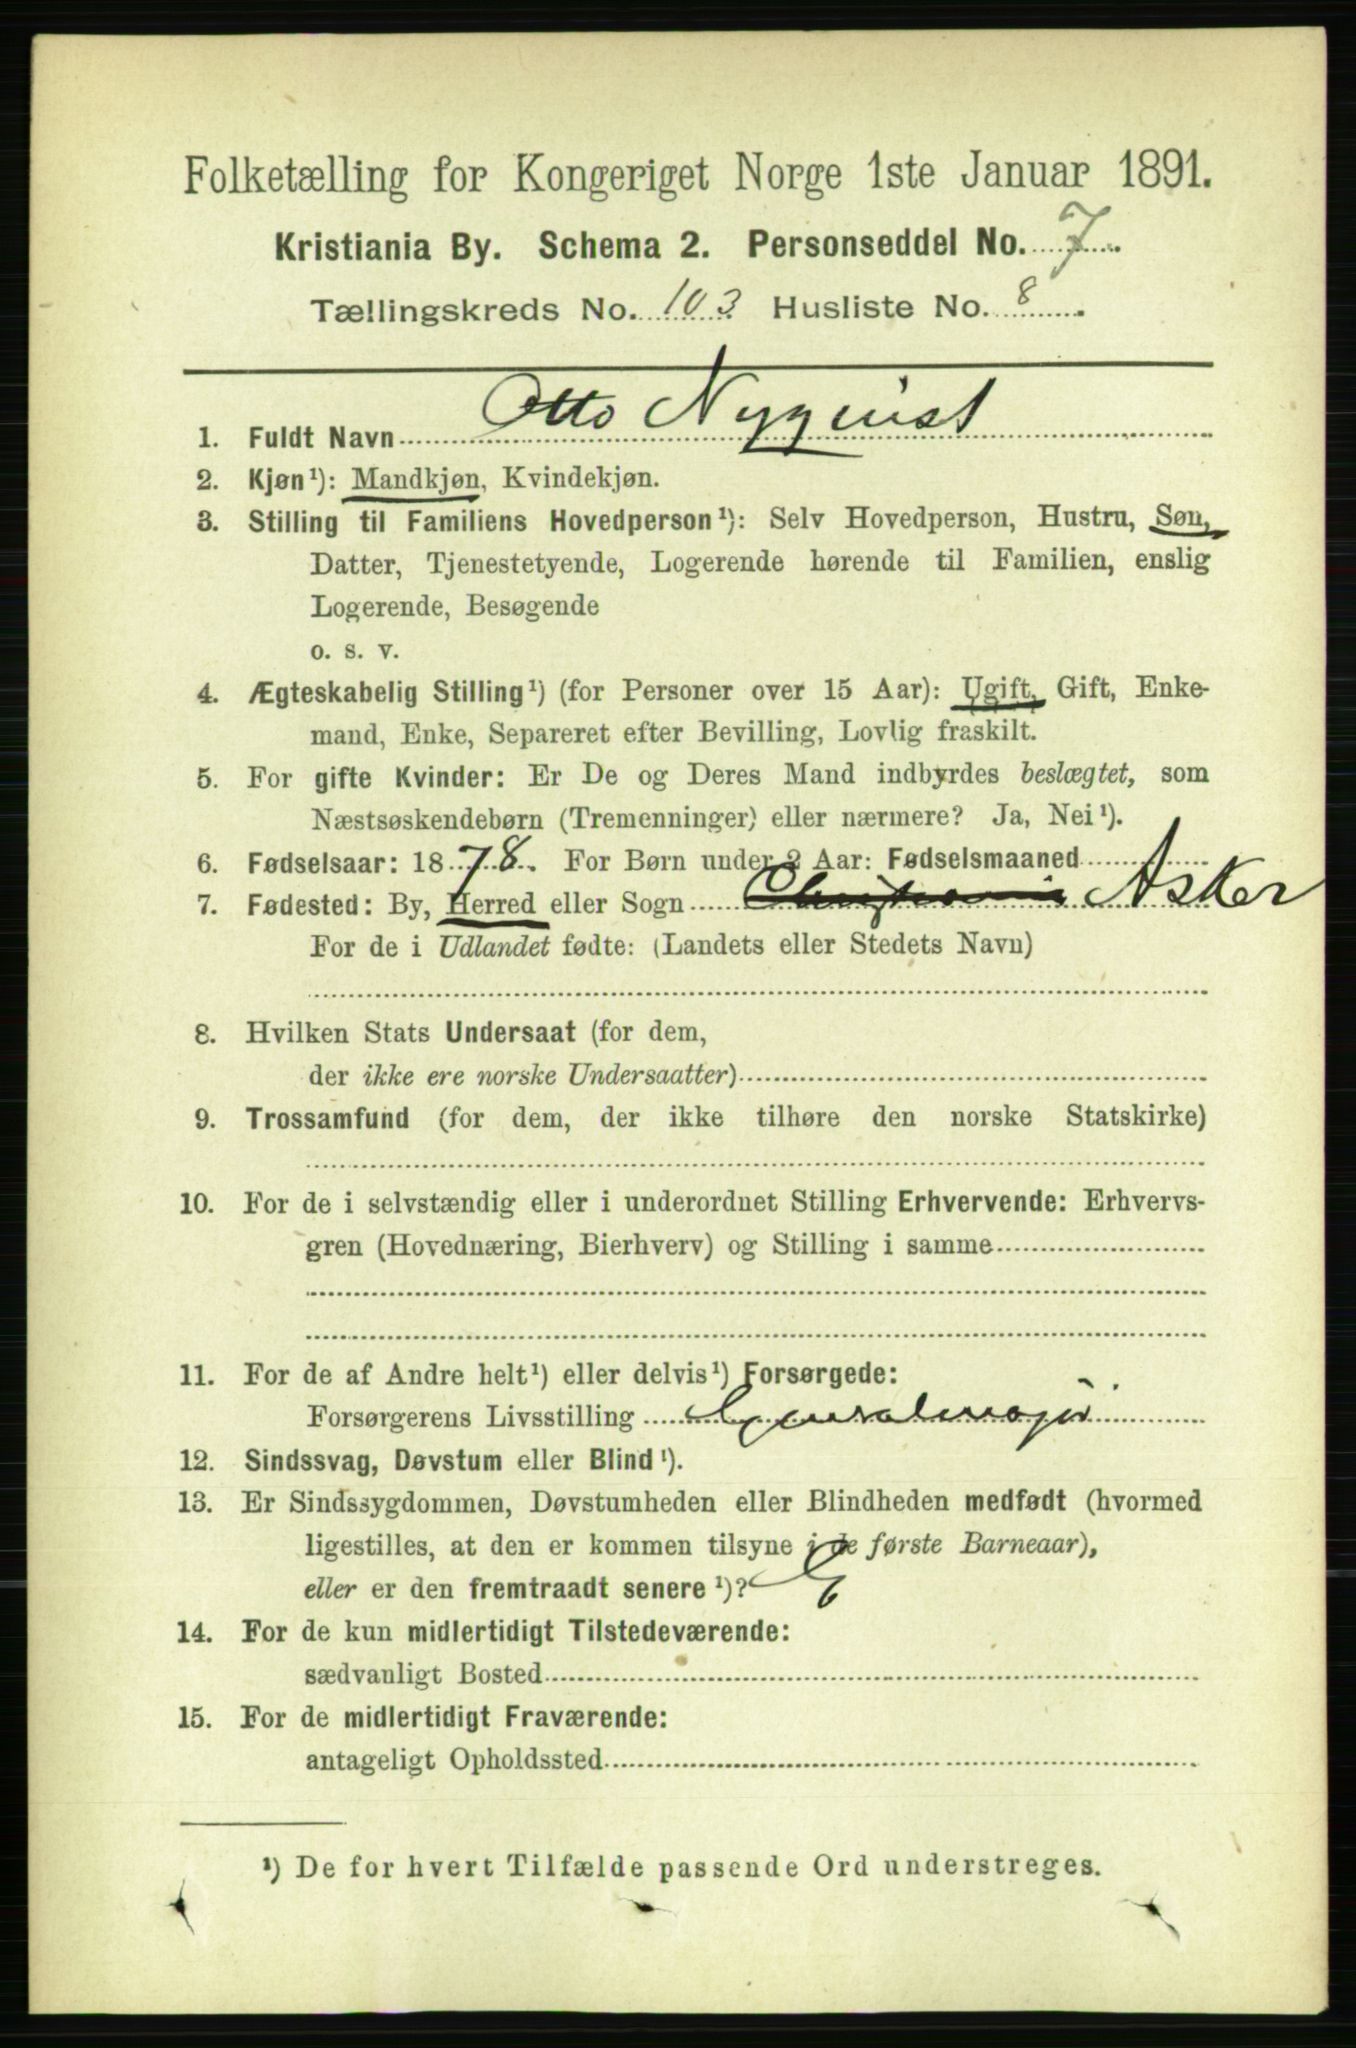 Folketælling for Kongeriget Norge 1ste Januar 1891.
Kristiania By. Schema 2. Personseddel No. 7
Tællingskreds No. 103 Husliste No. 8
1. Fuldt Navn Otto Nyquist
2. Kjøn¹): Mandkjøn, Kvindekjøn.
3. Stilling til Familiens Hovedperson¹): Selv Hovedperson, Hustru, Søn,
Datter, Tjenestetyende, Logerende hørende til Familien, enslig
Logerende, Besøgende
o. s. v.
4. Ægteskabelig Stilling¹) (for Personer over 15 Aar): Ugift, Gift, Enke-
mand, Enke, Separeret efter Bevilling, Lovlig fraskilt.
5. For gifte Kvinder: Er De og Deres Mand indbyrdes beslægtet, som
Næstsøskendebørn (Tremenninger) eller nærmere? Ja, Nei¹).
6. Fødselsaar: 1878. For Børn under 2 Aar: Fødselsmaaned
7. Fødested: By, Herred eller Sogn Christiania Asker
For de i Udlandet fødte: (Landets eller Stedets Navn)
8. Hvilken Stats Undersaat (for dem,
der ikke ere norske Undersaatter)
9. Trossamfund (for dem, der ikke tilhøre den norske Statskirke)
10. For de i selvstændig eller i underordnet Stilling Erhvervende: Erhvervs-
gren (Hovednæring, Bierhverv) og Stilling i samme
11. For de af Andre helt¹) eller delvis¹) Forsørgede:
Forsørgerens Livsstilling Generalmajor
12. Sindssvag, Døvstum eller Blind¹).
13. Er Sindssygdommen, Døvstumheden eller Blindheden medfødt (hvormed
ligestilles, at den er kommen tilsyne i de første Barneaar),
eller er den fremtraadt senere¹)?
14. For de kun midlertidigt Tilstedeværende:
sædvanligt Bosted
15. For de midlertidigt Fraværende:
antageligt Opholdssted
¹) De for hvert Tilfælde passende Ord understreges.